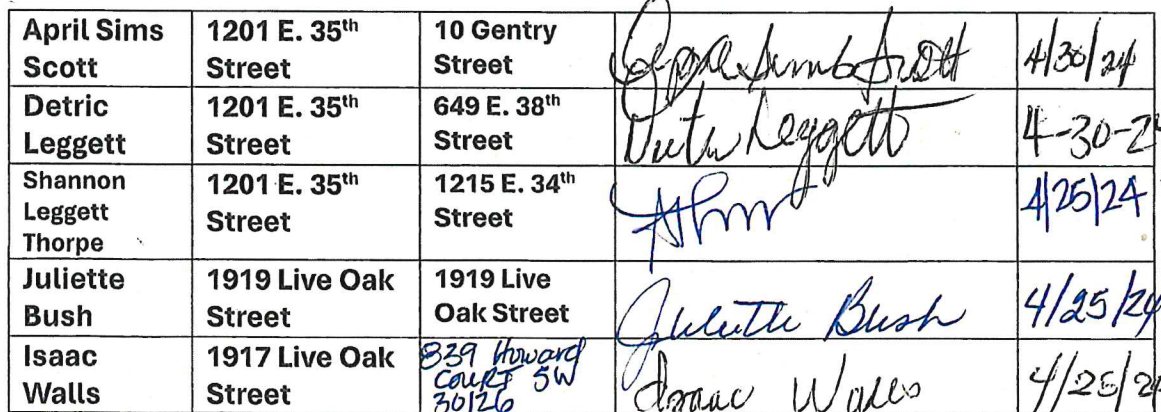 April Sims Scott 1201 E. 35th Street 10 Gentry Street April Sims Scott 4/30/24
Detric Leggett 1201 E. 35th Street 649 E. 38th Street Leggett 4-30-2
Shannon Leggett Thorpe 1201 E. 35th Street 1215 E. 34th Street 4/25/24
Juliette Bush 1919 Live Oak Street 1919 Live Oak Street Juliette Bush 4/25/24
Isaac Walls 1917 Live Oak Street 839 Howard Court SW 30126 Isaac Walls 4/25/2